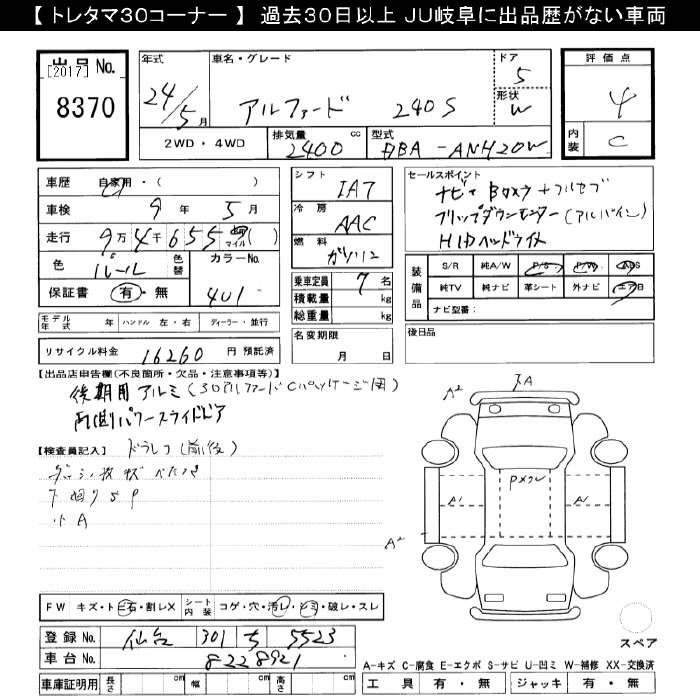 【 トレタマ30コーナー 】 過去30日以上 JU岐阜に出品歴がない車両
出品 No.
[2017]
8370
年式 24/5 月
車名・グレード
アルファード 240S
ドア 5
形状 W
評価点 4
内装 C
2WD・4WD
排気量 2400 cc
型式 DBA-ANH20W
車歴 自家用・( )
車検 9 年 5 月
走行 9万 4千 6 5 5 マイル( )
色 パール 色替
カラーNo. 401
保証書 有・無
シフト IA7
冷房 AAC
燃料 ガソリン
乗車定員 7 名
積載量 kg
総重量 kg
名変期限 月 日
セールスポイント
ナビ+Bカメラ+フルセグ
フリップダウンモニター(アルパイン)
HIDヘッドライト
装備品
S/R 純A/W P/S P/W ABS
純TV 純ナビ 革シート 外ナビ エアB
ナビ型番:
後日品
モデル年式 年 ハンドル 左・右 ディーラー・並行
リサイクル料金 16260 円 預託済
【出品店申告欄(不良箇所・欠品・注意事項等)】
後期用アルミ(30アルファードCパッケージ用)
両側パワースライドドア
【検査員記入】 ドラレコ(前後)
下廻りSP
小A
A2
A
Pメクレ
A1
A2
FW キズ・トビ石・割レX
シート内装 コゲ・穴・汚レ・シミ・破レ・スレ
登録 No. 仙台 301 ち 5523
車台 No. 8228921
車庫証明用 長さ cm 幅 cm 高さ cm
スペア
A-キズ C-腐食 E-エクボ S-サビ U-凹ミ W-補修 XX-交換済
工具 有・無 ジャッキ 有・無